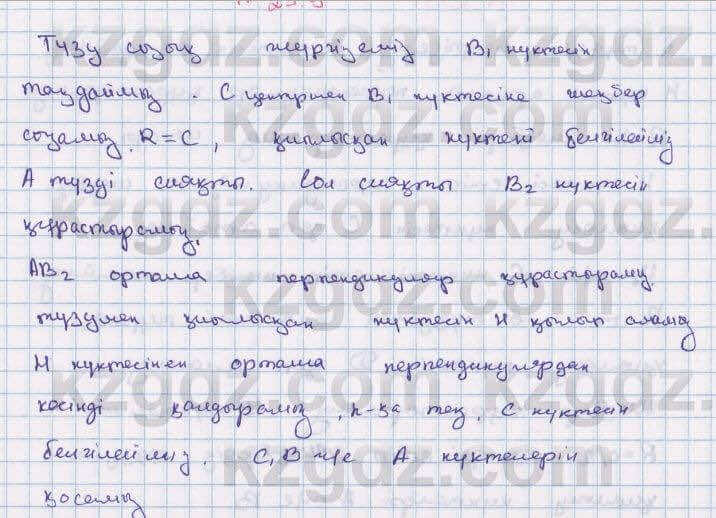 Түзу сызық жүргіземіз B₁ нүктесін
таңдаймыз. С центрмен B₁ нүктесіне шеңбер
сызамыз. R = C, қиылысқан нүктені белгілейміз
A түзді сияқты. Сол сияқты B₂ нүктесін
құрастырамыз.
AB₂ орташа перпендикуляр құрастырамыз
түзумен қиылысқан нүктесін H қылып аламыз
H нүктесінен орташа перпендикулярдан
кесінді қалдырамыз, h-қа тең. C нүктесін
белгілейміз. C, B және A нүктелерін
қосамыз
kzgdz.com